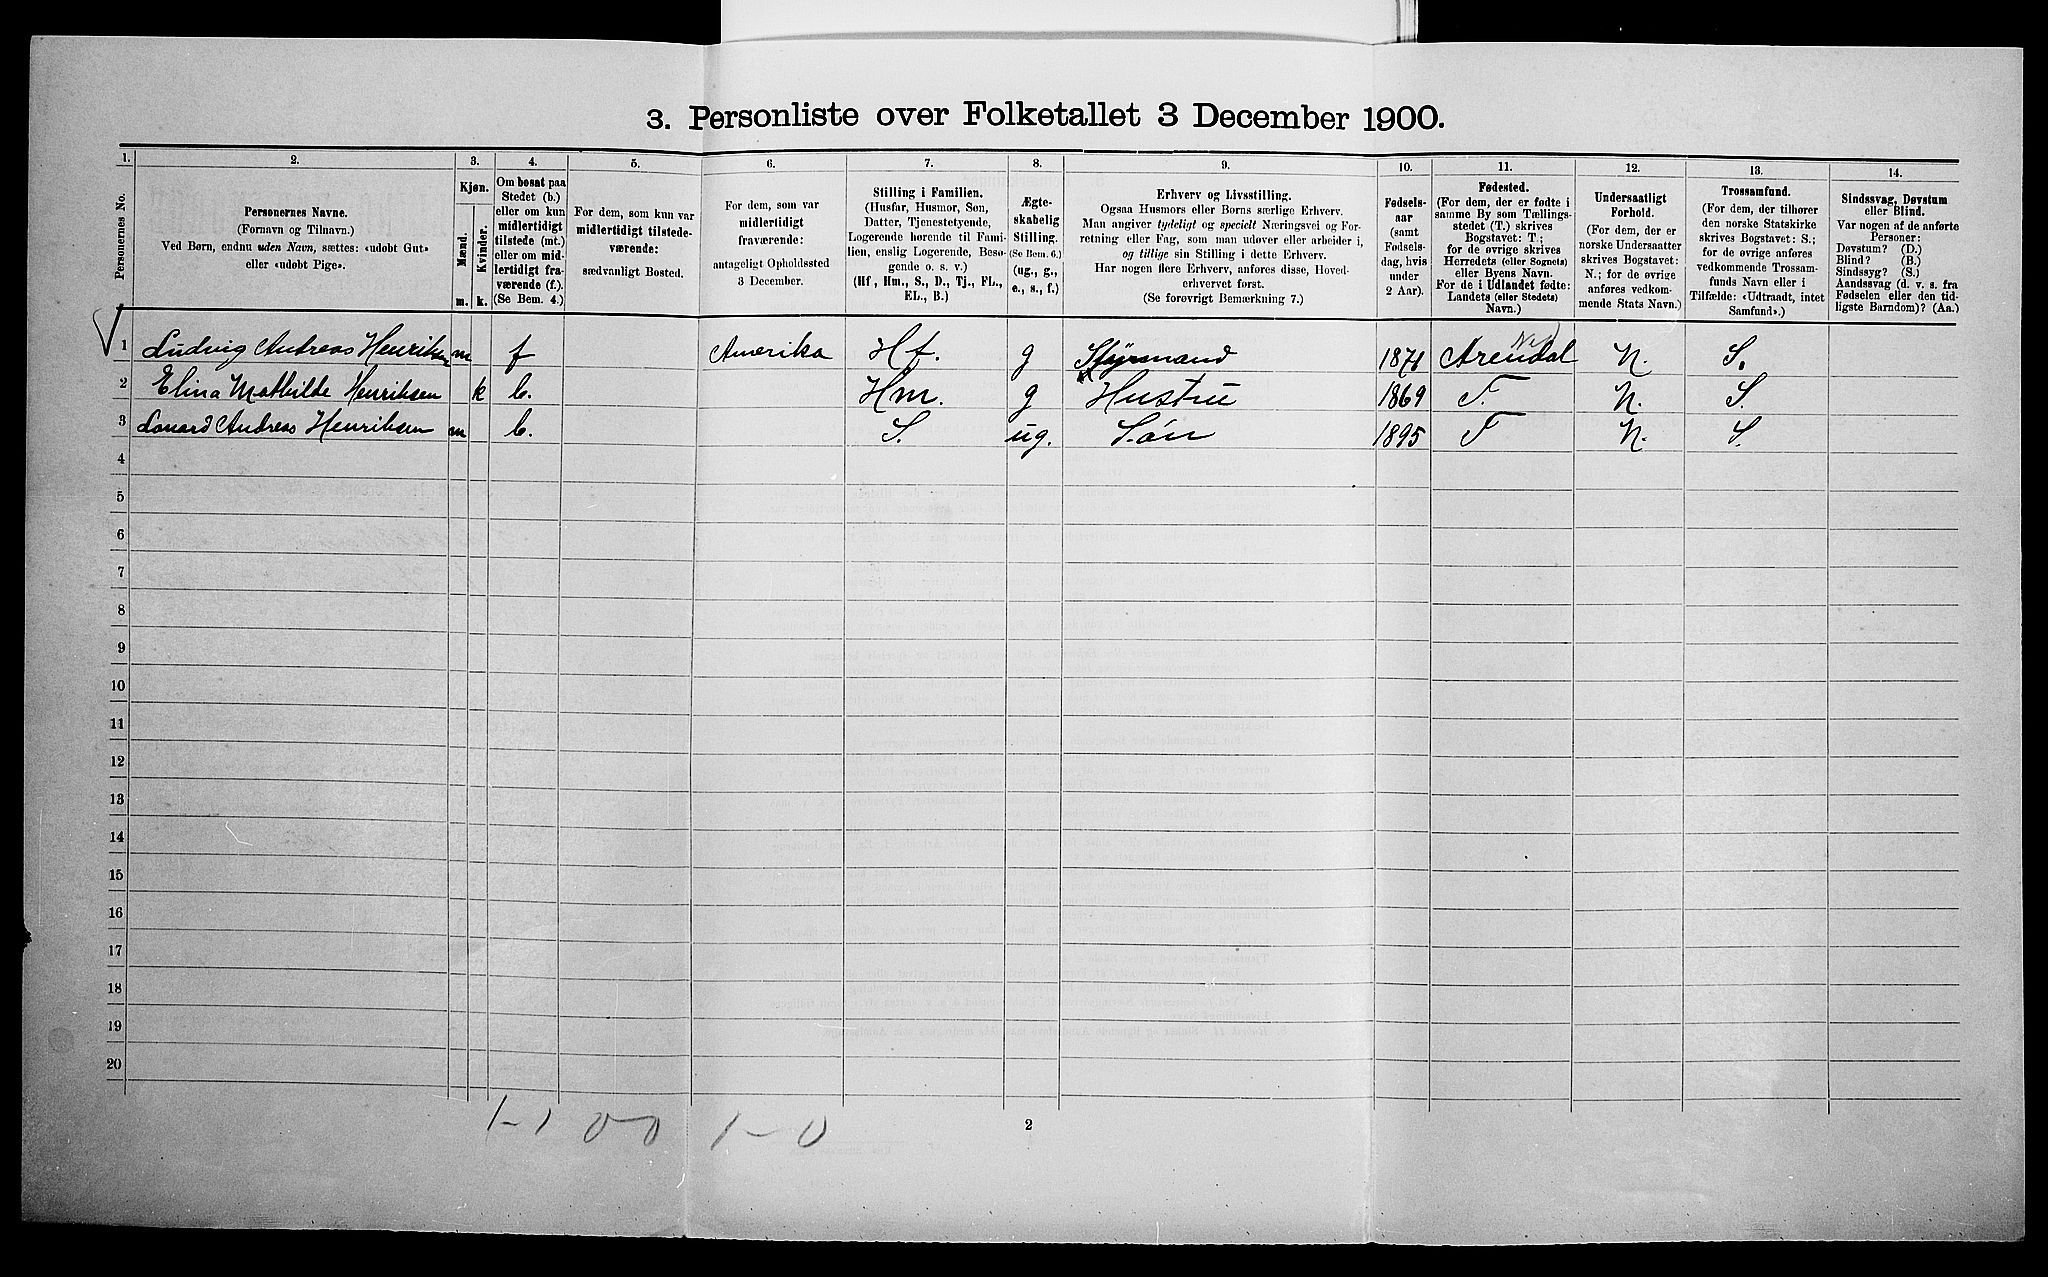 3. Personliste over Folketallet 3 December 1900.
1. 2. 3. 4. 5. 6. 7. 8. 9. 10. 11. 12. 13. 14.
Personernes No.
Personernes Navne.
(Fornavn og Tilnavn.)
Ved Børn, endnu uden Navn, sættes: «udøbt Gut»
eller «udøbt Pige».
Kjøn.
Mænd.
Kvinder.
m. k.
Om bosat paa
Stedet (b.)
eller om kun
midlertidigt
tilstede (mt.)
eller om mid-
lertidigt fra-
værende (f.).
(Se Bem. 4.)
For dem, som kun var
midlertidigt tilstede-
værende:
sædvanligt Bosted.
For dem, som var
midlertidigt
fraværende:
antageligt Opholdssted
3 December.
Stilling i Familien.
(Husfar, Husmor, Søn,
Datter, Tjenestetyende,
Logerende hørende til Fami-
lien, enslig Logerende, Besø-
gende o. s. v.)
(Hf, Hm., S., D., Tj., FL.,
EL., B.)
Ægte-
skabelig
Stilling.
(Se Bem. 6.)
(ug., g.,
e., s., f.)
Erhverv og Livsstilling.
Ogsaa Husmors eller Børns særlige Erhverv.
Man angiver tydeligt og specielt Næringsvei og For-
retning eller Fag, som man udøver eller arbeider i,
og tillige sin Stilling i dette Erhverv.
Har nogen flere Erhverv, anføres disse, Hoved-
erhvervet først.
(Se forøvrigt Bemærkning 7.)
Fødsels-
aar
(samt
Fødsels-
dag, hvis
under
2 Aar).
Fødested.
(For dem, der er fødte i
samme By som Tællings-
stedet (T.) skrives
Bogstavet: T.;
for de øvrige skrives
Herredets (eller Sognets)
eller Byens Navn.
For de i Udlandet fødte:
Landets (eller Stedets)
Navn.)
Undersaatligt
Forhold.
(For dem, der er
norske Undersaatter
skrives Bogstavet:
N.; for de øvrige
anføres vedkom-
mende Stats Navn.)
Trossamfund.
(For dem, der tilhører
den norske Statskirke
skrives Bogstavet: S.;
for de øvrige anføres
vedkommende Trossam-
funds Navn eller i
Tilfælde: «Udtraadt, intet
Samfund».)
Sindssvag, Døvstum
eller Blind.
Var nogen af de anførte
Personer:
Døvstum? (D.)
Blind? (B.)
Sindssyg? (S.)
Aandssvag (d. v. s. fra
Fødselen eller den tid-
ligste Barndom)? (Aa.)
1 Ludvig Andreas Henriksen m f Amerika Hf. g Styrmand 1871 Arendal N. S.
2 Elina Mathilde Henriksen k b. Hm. g Hustru 1869 T. N. S.
3 Lonard Andreas Henriksen m b. S. ug. Søn 1895 T N. S.
4
5
6
7
8
9
10
11
12
13
14
15
16
17
18
19
20
1-1 0-0 1-0
2